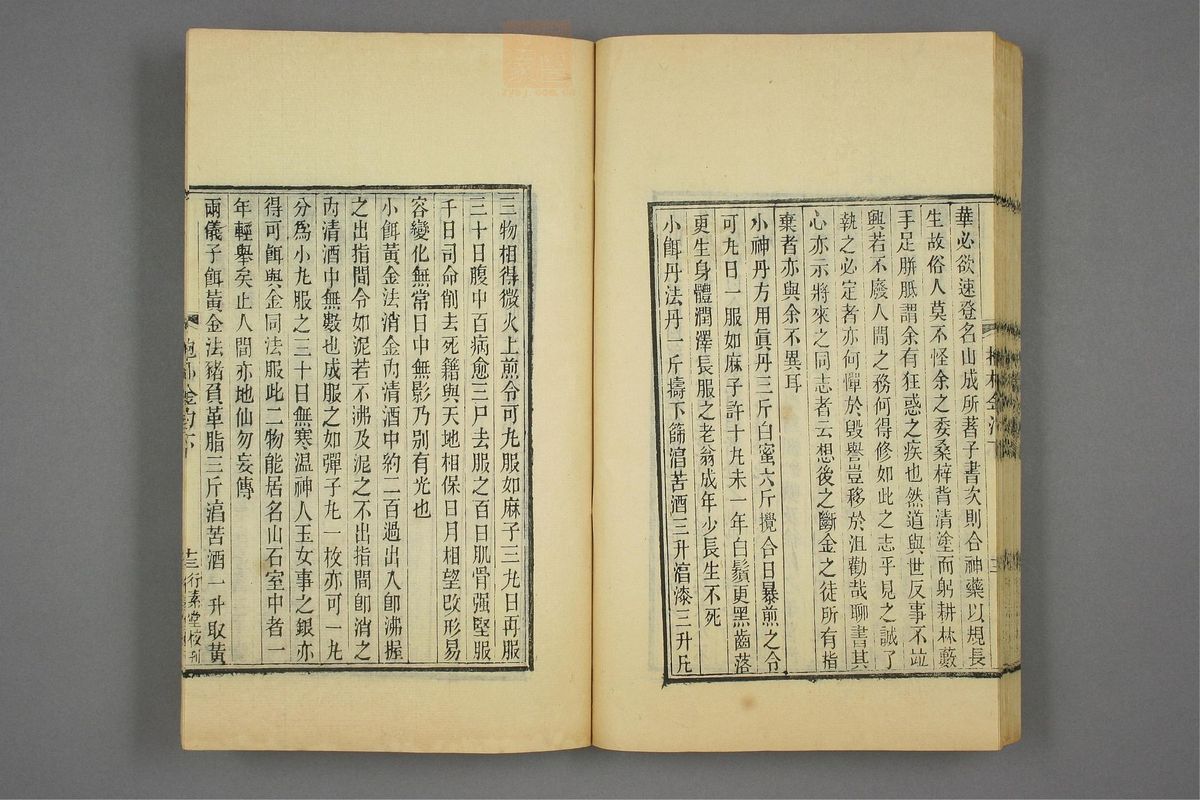 華必欲速登名山成所著子書次則合神藥以規長
生故俗人莫不怪余之委桑梓背清塗而躬耕林藪
手足胼胝謂余有狂惑之疾也然道與世反事不竝
興若不廢人間之務何得修如此之志乎見之誠了
執之必定者亦何憚於毀譽豈移於沮勸哉聊書其
心亦示將來之同志者云想後之斷金之徒所有指
棄者亦與余不異耳
小神丹方用眞丹三斤白蜜六斤攪合日暴煎之令
可丸旦一服如麻子許十丸未一年白鬚更黑齒落
更生身體潤澤長服之老翁成年少長生不死
小餌丹法丹一斤擣下篩㴷苦酒三升㴷漆三升凡
三物相得微火上煎令可丸服如麻子三丸日再服
三十日腹中百病愈三尸去服之百日肌骨强堅服
千日司命削去死籍與天地相保日月相望改形易
容變化無常日中無影乃別有光也
小餌黃金法消金內清酒中約二百過出入卽沸握
之出指間令如泥若不沸及泥之不出指間卽消之
內清酒中無數也成服之如彈子丸一枚亦可一丸
分爲小丸服之三十日無寒温神人玉女事之銀亦
得可餌與金同法服此二物能居名山石室中者一
年輕舉矣止人間亦地仙勿妄傳
兩儀子餌黃金法豬負革脂三斤㴷苦酒一升取黃
行素堂校刊